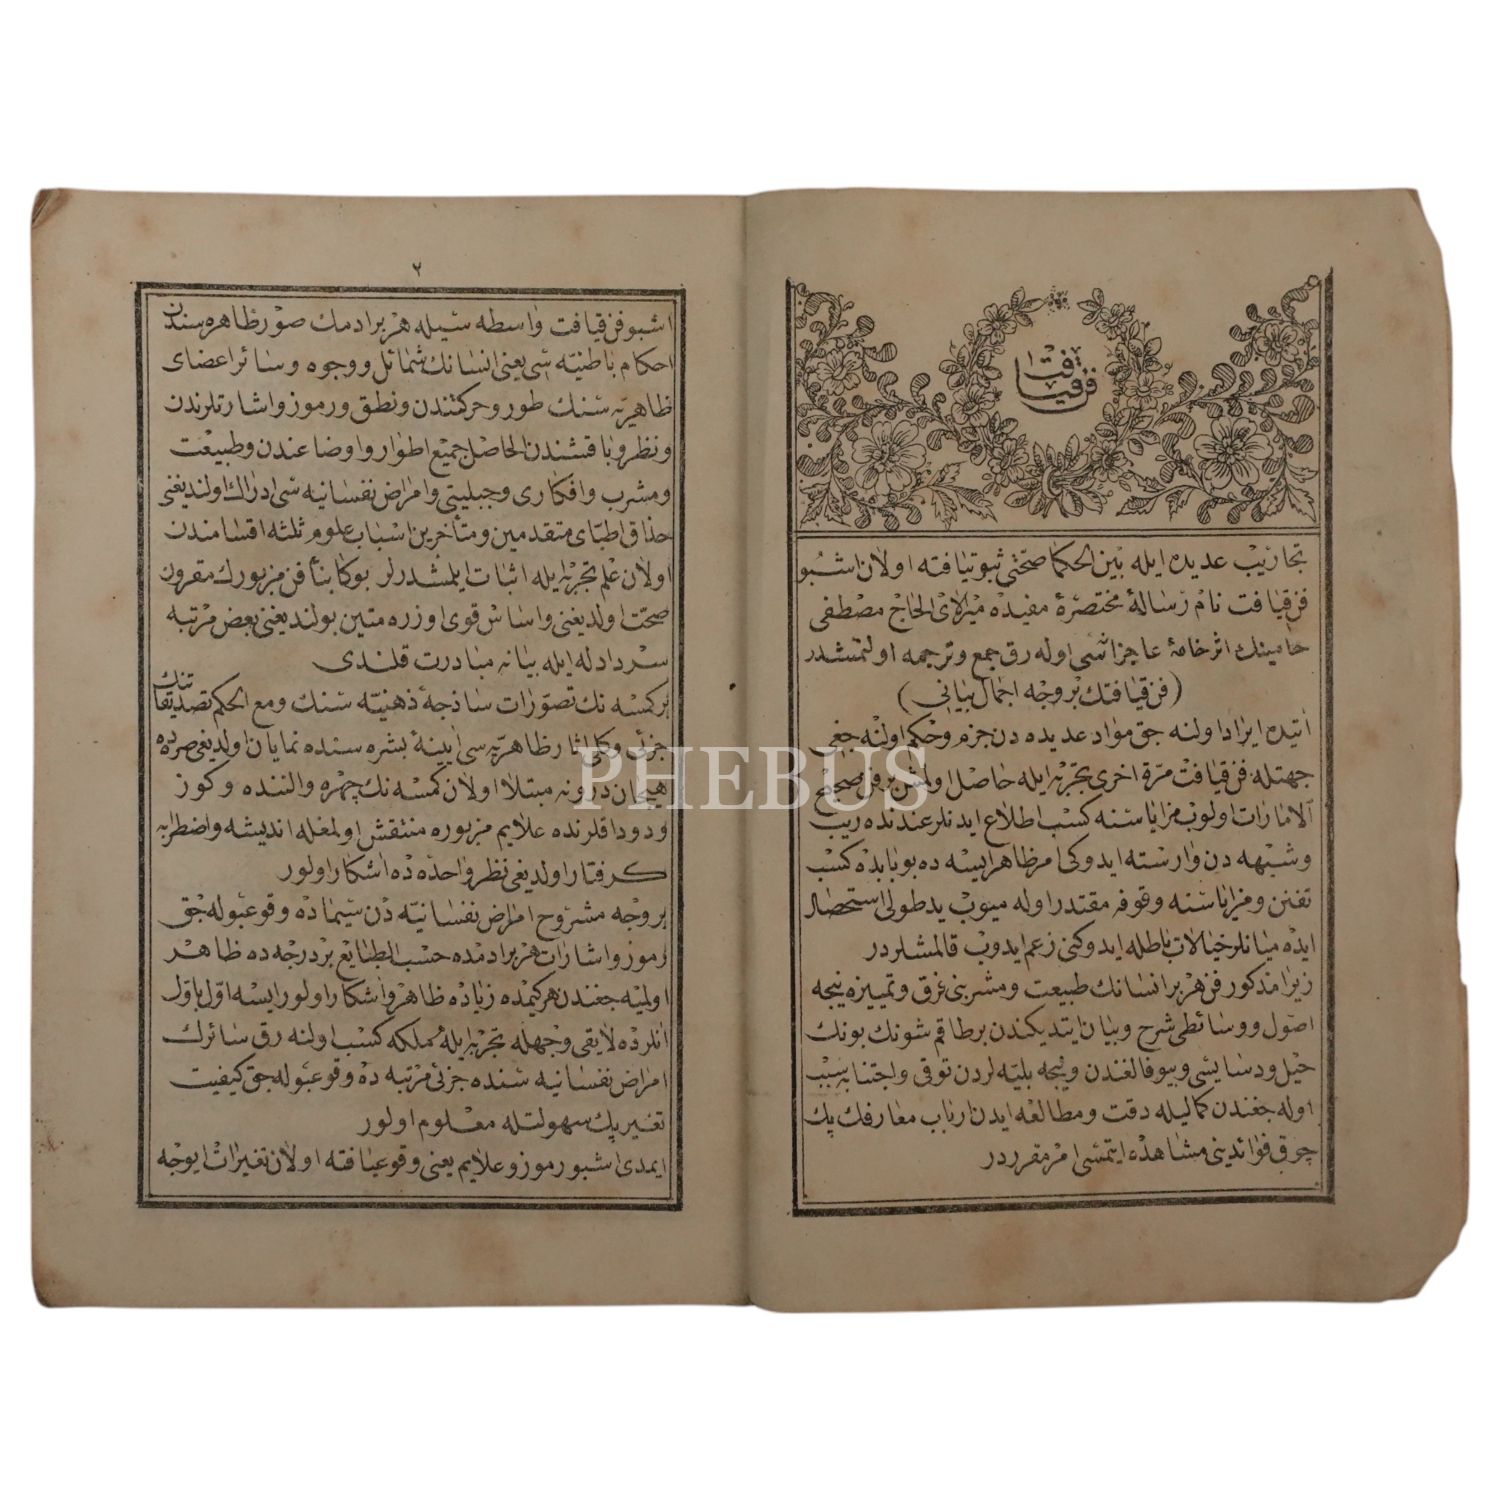 فن قیافت
تجاریب عدیده ایله بین الحکما صحتی ثبوتیافته اولان اشبو
فن قیافت نام رسالهٔ مختصرهٔ مفیده میرالای الحاج مصطفی
حامینك اثر خامهٔ عاجزانه‌سی اوله رق جمع وترجمه اولنمشدر
(فن قیافتك بروجه اجمال بیانی)
اتیده ایراد اولنه جق مواد عدیده دن جزم وحکم اولنه جغی
جهتله فن قیافت مرة اخری تجربه ایله حاصل اولمش بر فن صحیح
الامارات اولوب مزایاسنه کسب اطلاع ایدنلر عندنده ریب
وشبهه دن وارسته ایدوکی امر ظاهر ایسه ده بو بابده کسب
تفنن ومزایاسنه وقوفه مقتدر اوله میوب ید طولی استحصال
ایده میانلر خیالات باطله ایدوکنی زعم ایدوب قالمشلردر
زیرا مذکور فن هر بر انسانك طبیعت ومشربنی فرق وتمییزه نیجه
اصول ووسائطی شرح وبیان ایتدیکندن بر طاقم شونك بونك
حیل ودسایسی وبیوفالغندن ونیجه بلیه لردن توقی واجتنابه سبب
اوله جغندن کمالیله دقت ومطالعه ایدن ارباب معارفك پك
چوق فوائدینی مشاهده ایتمسی امر مقرردر
٢
اشبو فن قیافت واسطه سیله هر بر ادمك صور ظاهره سندن
احکام باطنیه سی یعنی انسانك شمائل ووجوه وسائر اعضای
ظاهریه سنك طور وحرکتندن ونطق ورموز واشارتلرندن
ونظر وباقشندن الحاصل جمیع اطوار واوضاعندن وطبیعت
ومشرب وافکاری وجبلیتی وامراض نفسانیه سی ادراك اولندیغنی
حذاق اطبای متقدمین ومتأخرین اسباب علوم ثلثه اقسامندن
اولان علم تجربه ایله اثبات ایلمشدرلر بوکا بناً فن مزبورك مقرون
صحت اولدیغنی واساس قوی اوزره متین بولندیغنی بعض مرتبه
سرد ادله ایله بیانه مبادرت قلندی
بر کسه نك تصورات ساذجهٔ ذهنیه سنك ومع الحکم تصدیقاتنك
جزئی وکلی اثار ظاهریه سی ایینهٔ بشره سنده نمایان اولدیغی مرده
هیجان درونه مبتلا اولان کمسه نك چهره والننده وکوز
ودوداقلرنده علایم مزبوره منتقش اولمغله اندیشه واضطرابه
کرفتار اولدیغی نظر واحده ده اشکار اولور
بر وجه مشروح امراض نفسانیه دن سیماده وقوعبوله جق
رموز واشارات هر بر ادمده حسب الطبایع بر درجه ده ظاهر
اولمیه جغندن هر کیمده زیاده ظاهر واشکار اولور ایسه اول باول
انلرده لایقی وجهله تجربه ایله ملکه کسب اولنه رق سائرك
امراض نفسانیه سنده جزئی مرتبه ده وقوعبوله جق کیفیت
تغیر پك سهولتله معلوم اولور
ایمدی اشبو رموز وعلایم یعنی وقوعیافته اولان تغیرات ایوجه
PHEBUS